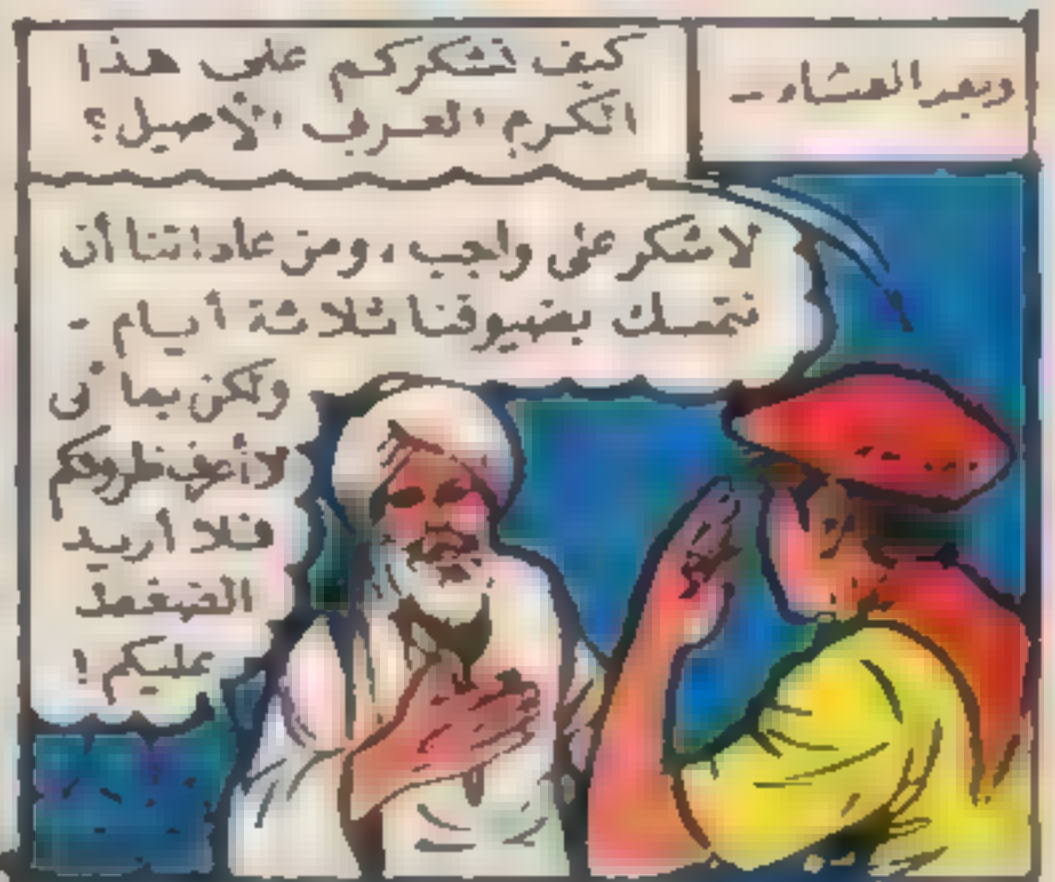 وبعد العشاء -
كيف نشكركم على هذا
الكرم العربي الأصيل؟
لا شكر على واجب، ومن عاداتنا أن
نتمسك بضيوفنا ثلاثة أيام -
ولكن بما أني
لا أعرف ظروفكم
فلا أريد
الضغط
عليكم!